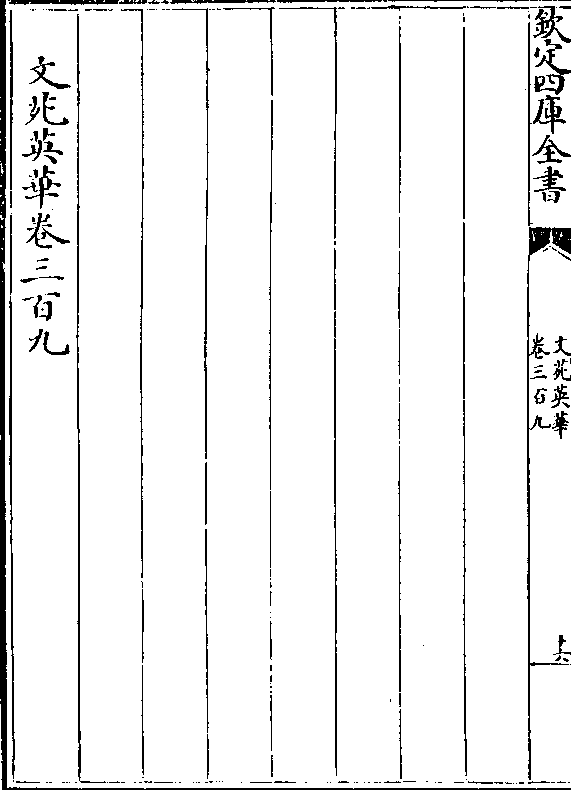 欽定四庫全書
文苑英華
卷三百九
十六
文苑英華卷三百九